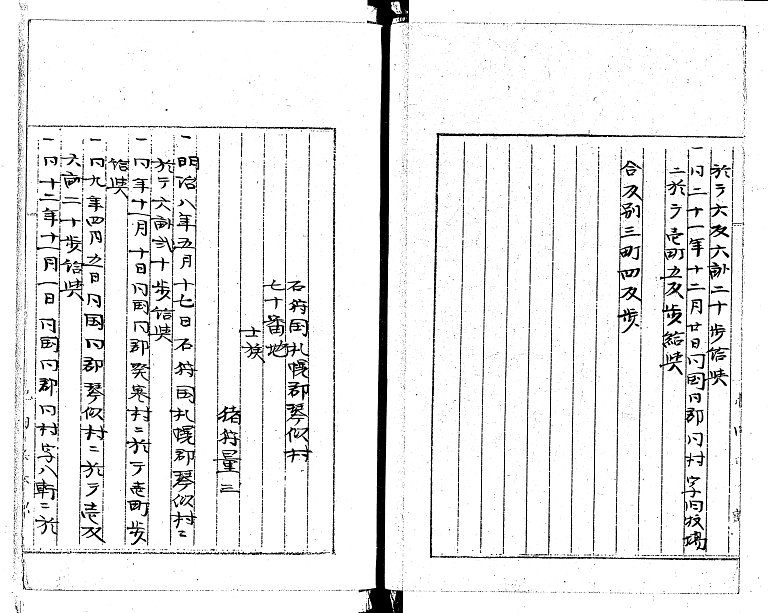 於テ六反六畝二十歩給與
一同二十一年十二月廿日同国同郡同村字旧牧場
ニ於テ壱町五反歩給與
合反別三町四反歩
石狩国札幌郡琴似村
七十番地
士族
猪狩量三
一明治八年五月十七日石狩国札幌郡琴似村ニ
於テ六畝弐十歩給與
一同年十一月十日同国同郡発寒村ニ於テ壱町歩
給與
一同九年四月五日同国同郡琴似村ニ於テ壱反
六畝二十歩給與
一同十二年十一月一日同国同郡同村字八軒ニ於